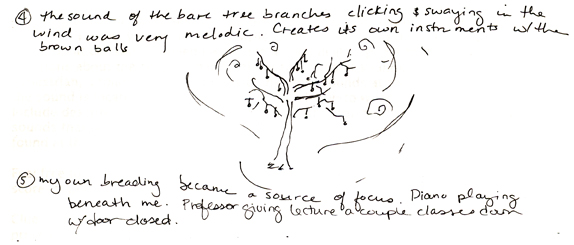 ④ the sound of the bare tree branches clicking & swaying in the
wind was very melodic. Creates its own instruments w/ the
brown balls
⑤ my own breading became a source of focus. Piano playing
beneath me. Professor giving lecture a couple classes down
w/ door closed.